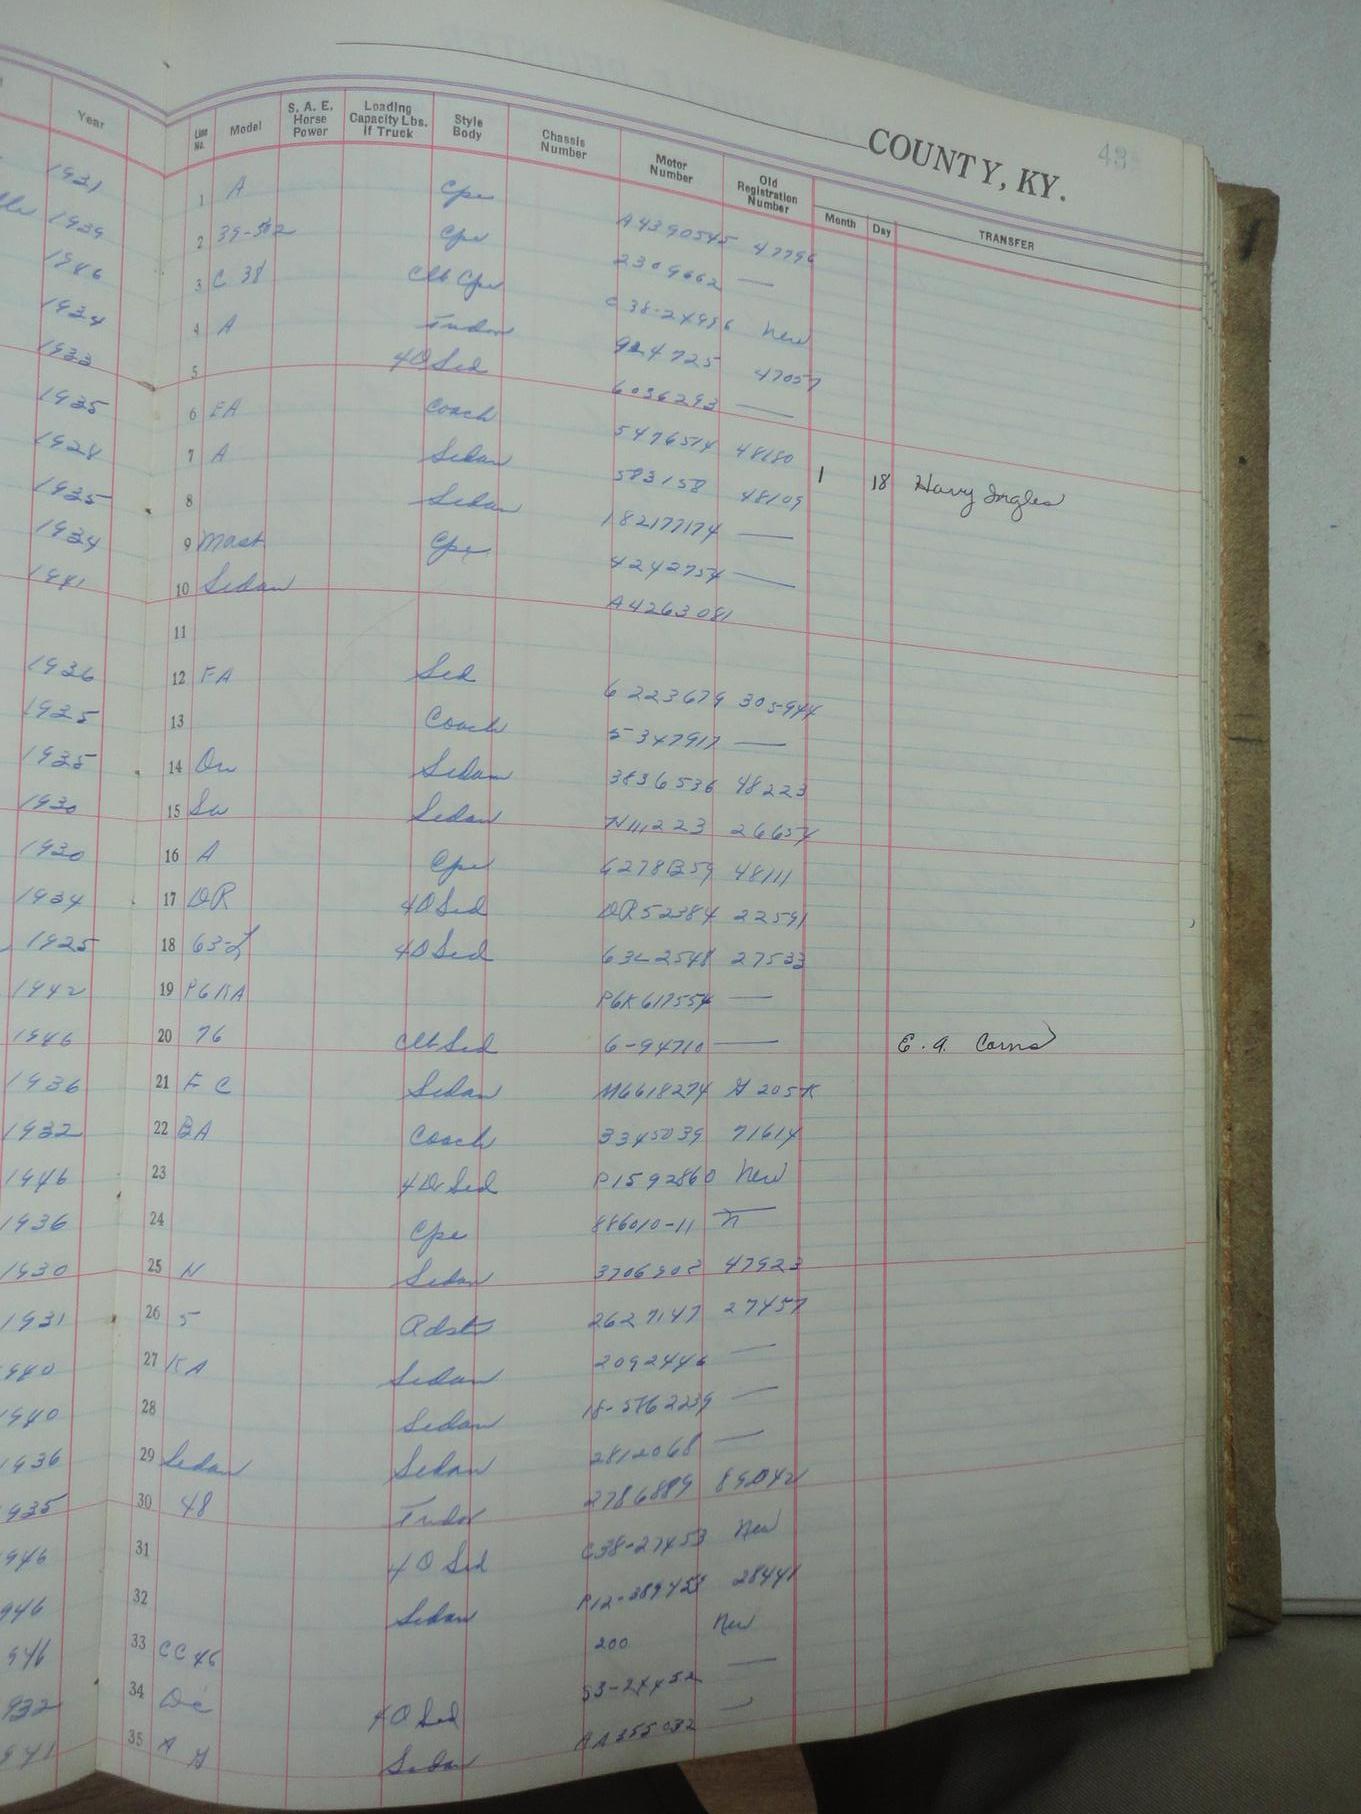 COUNTY, KY.
43
Year Line No. Model S. A. E. Horse Power Loading Capacity Lbs. If Truck Style Body Chassis Number Motor Number Old Registration Number Month Day TRANSFER
1931 1 A Cpe A4390545 47796
1939 2 Cpe 2309662 —
1946 3 C 38 Clb Cpe C38-24996 New
1934 4 A Tudor 924725 47057
1933 5 4D Sed 6036293 —
1935 6 EA Coach 5476514 48180
1928 7 A Sedan 583158 48109 1 18 Harry Ingles
1935 8 Sedan 182177174 —
1934 9 Mast Cpe 4242754 —
1941 10 Sedan A4263081
11
1936 12 FA Sed 6223679 305-944
1935 13 Coach 5347917 —
1935 14 Sedan 3836536 48223
1930 15 Sedan 26654
1930 16 A Cpe 6278B59 48111
1934 17 DR 4D Sed DR52384 22591
1925 18 63-L 4D Sed 63L2548 27533
1942 19 P6KA P6K617554 —
1946 20 76 Clb Sed 6-94710 — E. A. Corns
1936 21 FC Sedan M6618274
1932 22 BA Coach 3345039 71614
1946 23 4Dr Sed P1592860 New
1936 24 Cpe 886010-11
1930 25 N Sedan 47923
1931 26 5 Rdst 2627147 27457
940 27 KA Sedan 2092446 —
940 28 Sedan —
936 29 Sedan Sedan 2812068 —
935 30 48 Tudor 2786889
946 31 4D Sed C38-27453 New
946 32 Sedan 28441
946 33 CC46 200 New
932 34 4D Sed S3-24452 —
941 35 Sedan